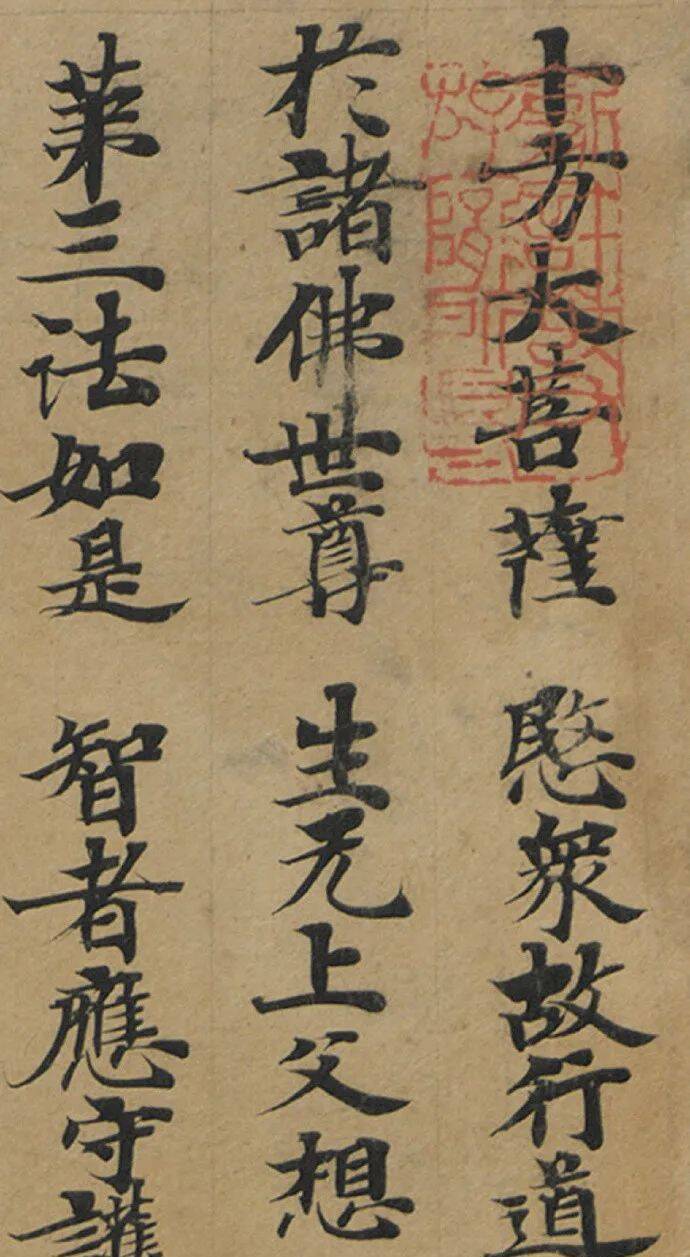 十方大菩薩 愍衆故行道
於諸佛世尊 生无上父想
苐三法如是 智者應守護